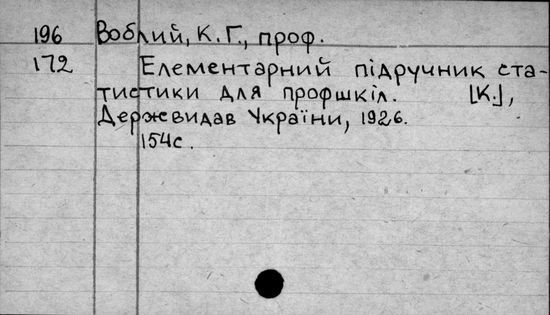 196 Воблий, К. Г., проф.
172 Елементарний підручник ста-
тистики для профшкіл. [К.],
Держвидав України, 1926.
154с.